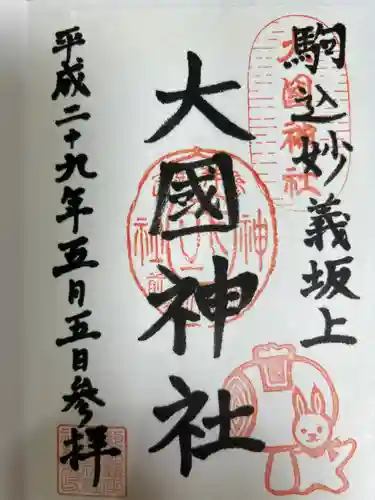 駒込妙義坂上
大國神社
平成二十九年五月五日参拝
大国神社